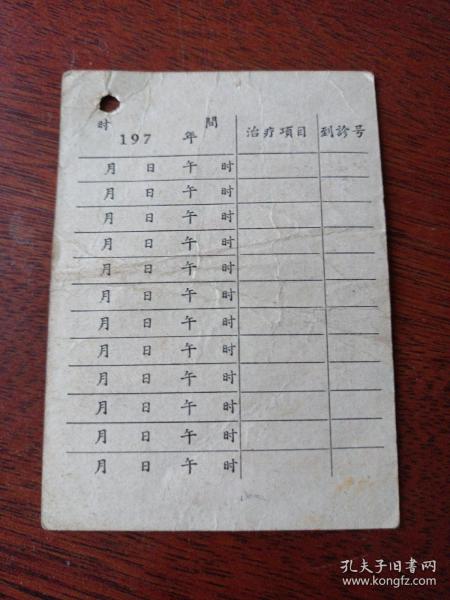 时 間 治疗項目 到診号
197 年
月 日 午 时
月 日 午 时
月 日 午 时
月 日 午 时
月 日 午 时
月 日 午 时
月 日 午 时
月 日 午 时
月 日 午 时
月 日 午 时
月 日 午 时
月 日 午 时
孔夫子旧书网
www.kongfz.com